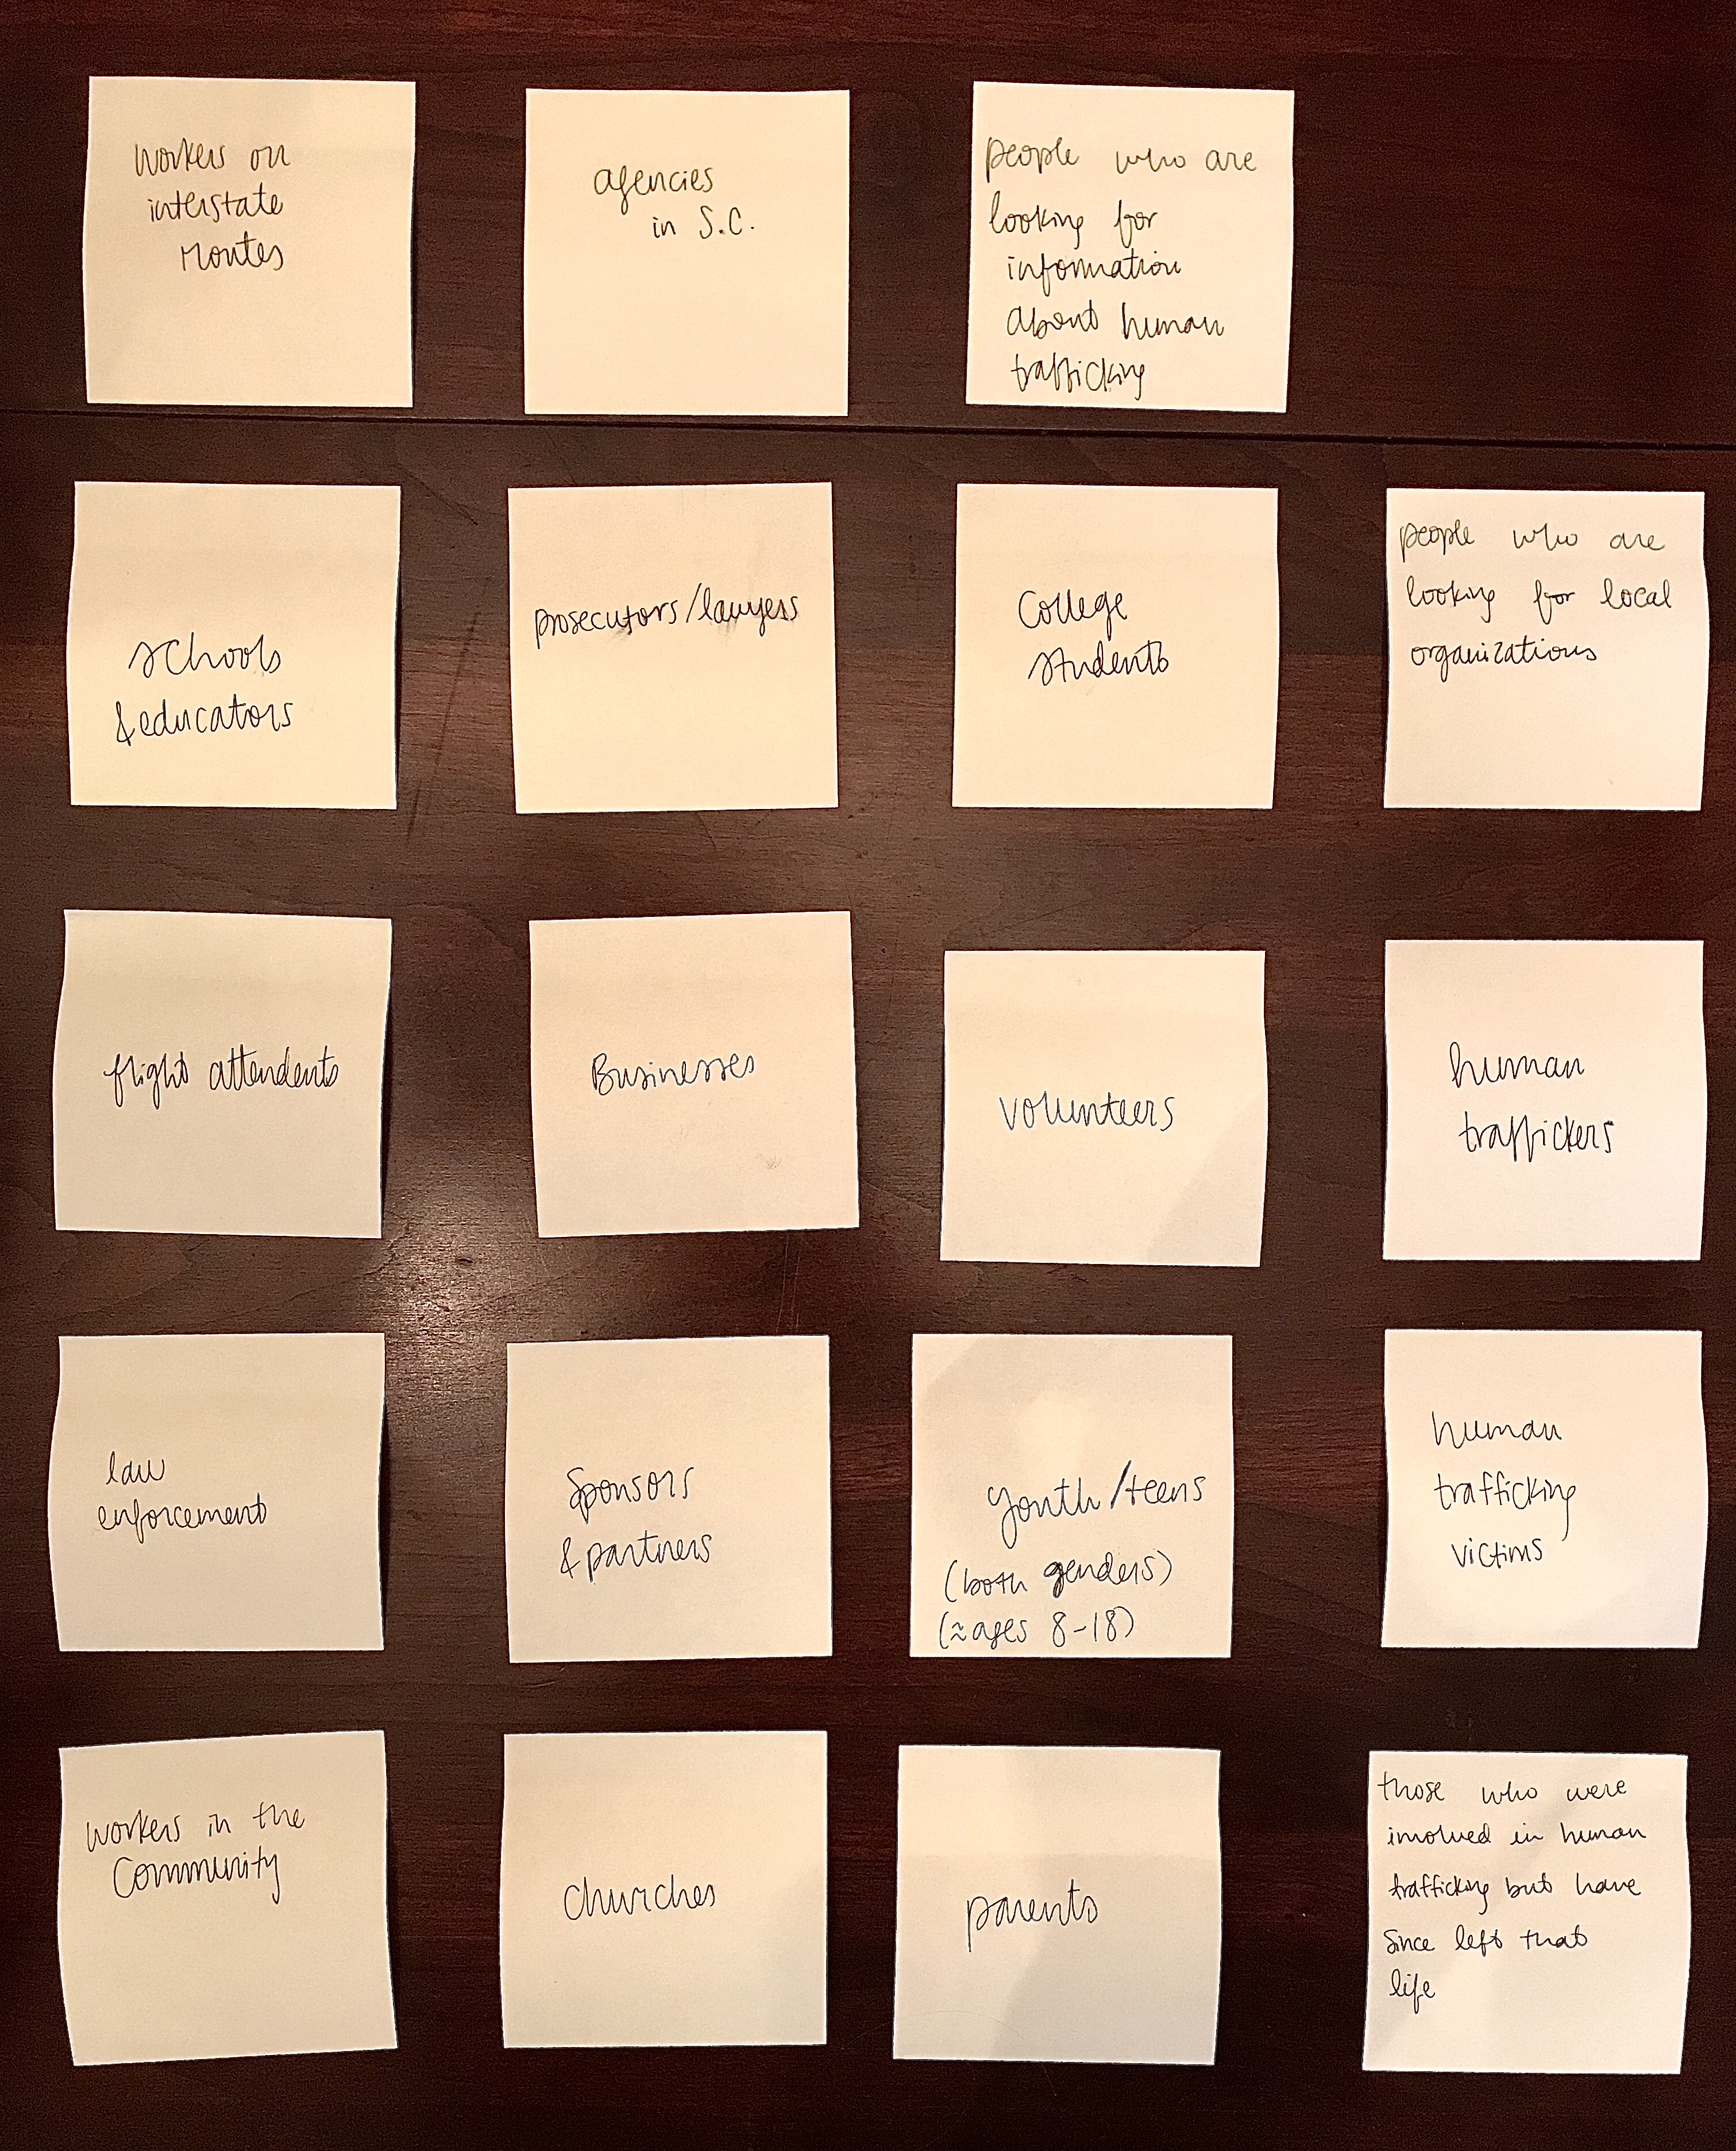 workers on
interstate
routes
agencies
in S.C.
people who are
looking for
information
about human
trafficking
schools
& educators
prosecutors/lawyers
College
students
people who are
looking for local
organizations
flight attendents
Businesses
volunteers
human
traffickers
law
enforcement
Sponsors
& partners
youth/teens
(both genders)
(≈ages 8-18)
human
trafficking
victims
workers in the
Community
churches
parents
those who were
involved in human
trafficking but have
since left that
life